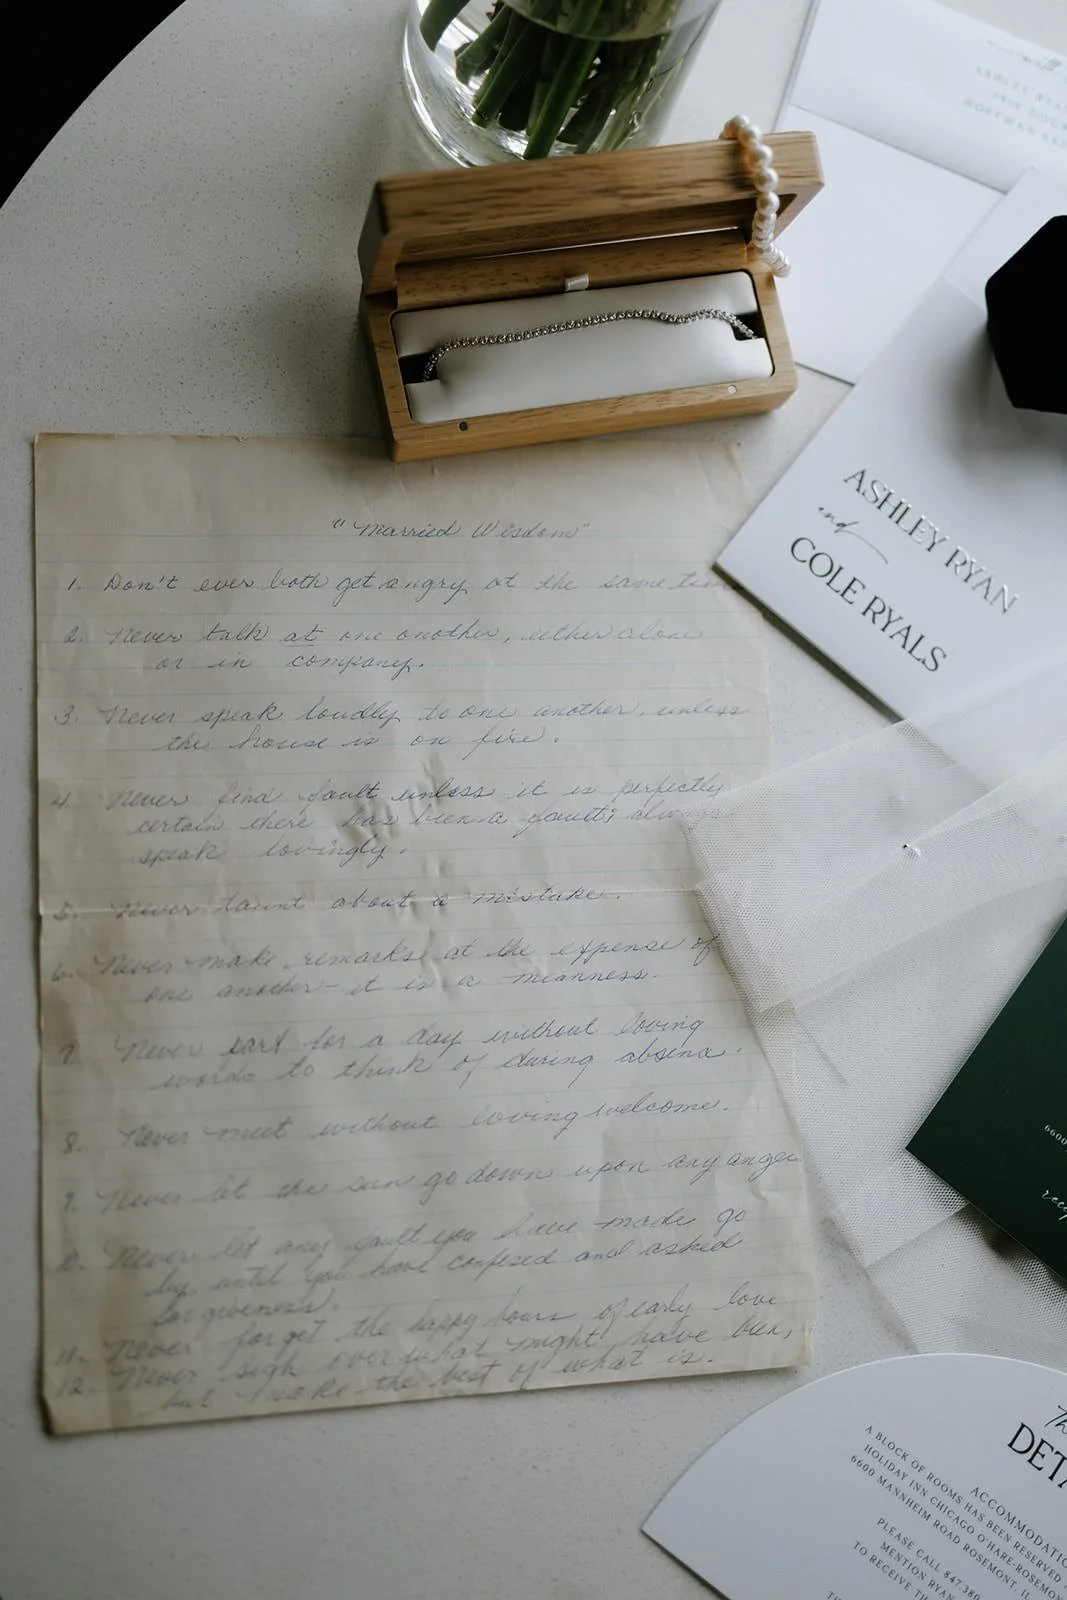 "Married Wisdom"
1. Don't ever both get angry at the same time
2. Never talk at one another, either alone
or in company.
3. Never speak loudly to one another, unless
the house is on fire.
4. Never find fault unless it is perfectly
certain there has been a fault; always
speak lovingly.
5. Never taunt about a mistake.
6. Never make remarks at the expense of
one another - it is a meanness.
7. Never part for a day without loving
words to think of during absence.
8. Never meet without loving welcome.
9. Never let the sun go down upon any anger
10. Never let any fault you have made go
by, until you have confessed and asked
forgiveness.
11. Never forget the happy hours of early love
12. Never sigh over what might have been,
but make the best of what is.
ASHLEY RYAN
and
COLE RYALS
6600
DETA
ACCOMMODATIO
A BLOCK OF ROOMS HAS BEEN RESERVED
HOLIDAY INN CHICAGO O'HARE-ROSEMON
6600 MANNHEIM ROAD ROSEMONT, IL
PLEASE CALL 847.380
MENTION RYAN
TO RECEIVE TH